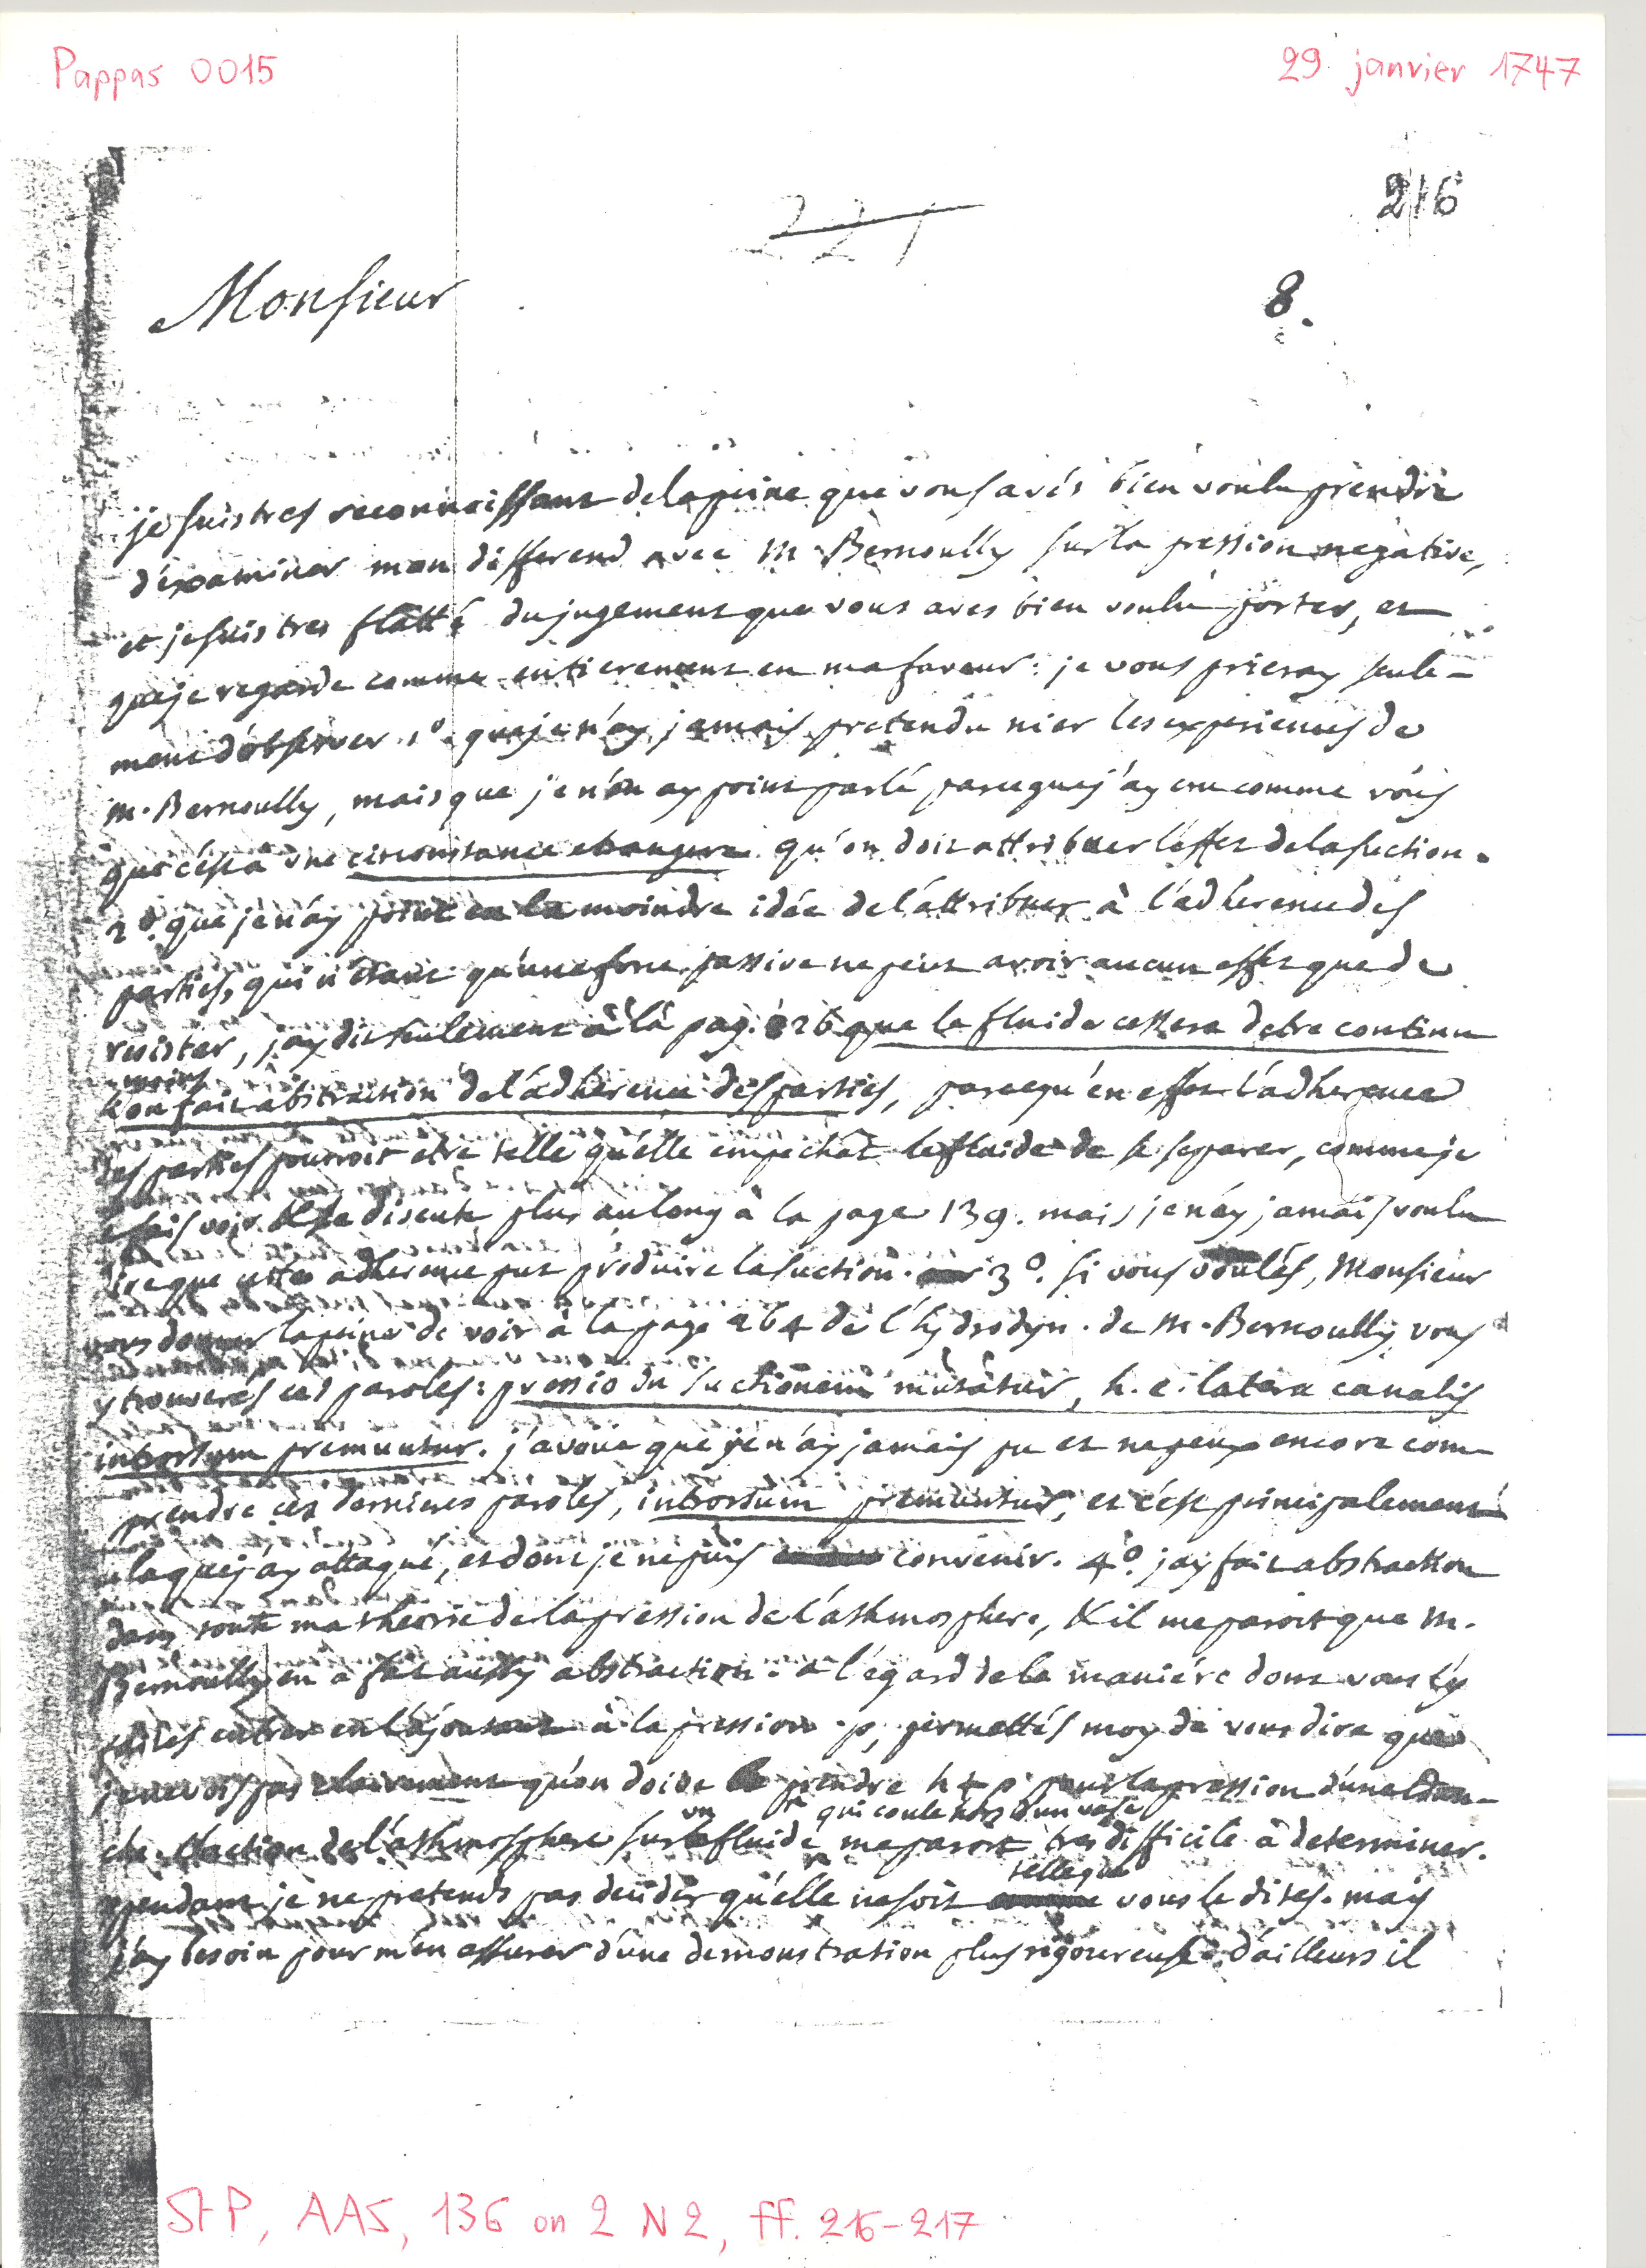 Pappas 0015
29 janvier 1747
216
221
8.
Monsieur
je suis tres reconnoissant de la peine que vous avés bien voulu prendre
d'éxaminer mon differend avec M. Bernoully sur la pression negative,
et je suis tres flatté du jugement que vous aves bien voulu porter, et
que je regarde comme entierement en ma faveur: je vous prieray seule-
ment d'observer 1º. que je n'ay jamais pretendu nier les experiences de
M. Bernoully, mais que je n'en ay point parlé parceque j'ay cru comme vous
que c'est à une circonstance etrangere qu'on doit attribuer l'effet de la suction.
2º. que je n'ay point eu la moindre idée de l'attribuer à l'adherence des
parties, qui n'etant qu'une force passive ne peut avoir aucun effet que de
resister, j'ay dit seulement à la pag. 26 que le fluide cessera detre continu
moins
l'on fait abstraction de l'adherence des parties, parcequ'en effet l'adherence
des parties pourroit etre telle qu'elle empechât le fluide de se separer, comme je
fais voir plus au long à la page 139. mais je n'ay jamais voulu
dire que cette adherence put produire la suction. 3º. si vous voulés, Monsieur
vous donner la peine de voir à la page 264 de l'hydrodyn. de M. Bernoully, vous
y trouverés ces paroles: pressio in suctionem mutatur, h. e. latera canalis
introrsum premuntur. j'avoue que je n'ay jamais pu et ne peux encore com-
prendre ces dernieres paroles, introrsum premuntur, et c'est principalement
la que j'ay attaqué, et dont je ne puis convenir. 4º. j'ay fait abstraction
dans toute ma théorie de la pression de l'athmosphere, & il me paroit que M.
Bernoully en a fait aussy abstraction. à l'égard de la maniére dont vous l'y
faites entrer en l'ajoutant à la pression p, permettés moy de vous dire que
je ne vois pas clairement qu'on doive prendre h + p pour la pression d'une tran-
un qui coule hors d'un vase
che. l'action de l'athmosphere sur fluide me paroit tres difficile à determiner.
telle que
cependant je ne pretends pas decider qu'elle ne soit vous le dites. mais
j'ay besoin pour m'en assurer d'une demonstration plus rigoureuse. d'ailleurs il
StP, AAS, 136 on 2 N 2, ff. 216-217